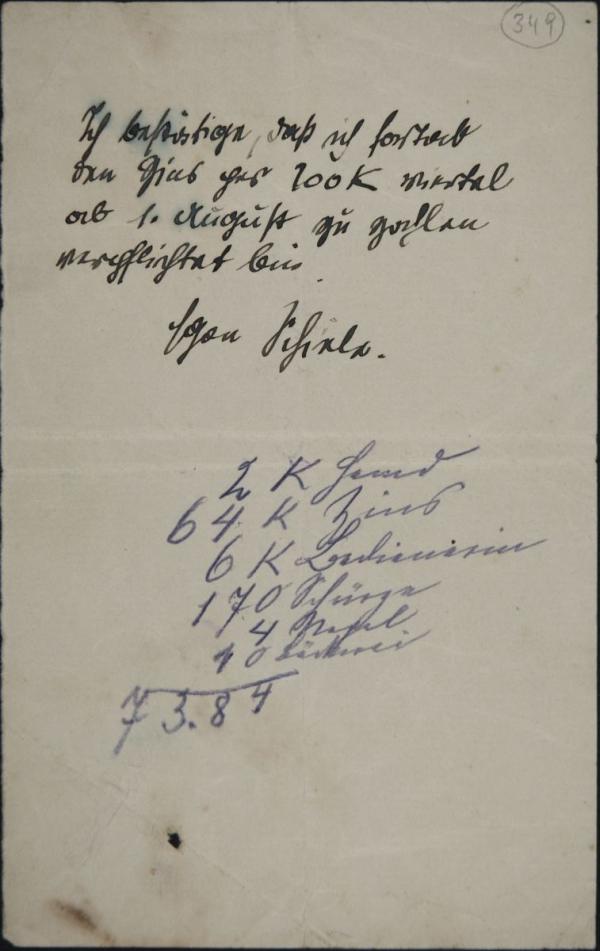 349
Ich bestätige, daß ich fortab
den Zins per 200 K viertel
ab 1. August zu zahlen
verpflichtet bin.
Egon Schiele.
2 K Hemd
64 K Zins
6 K Bedienerin
170 Schürze
4 Nagel
10 Bäckerei
73.84